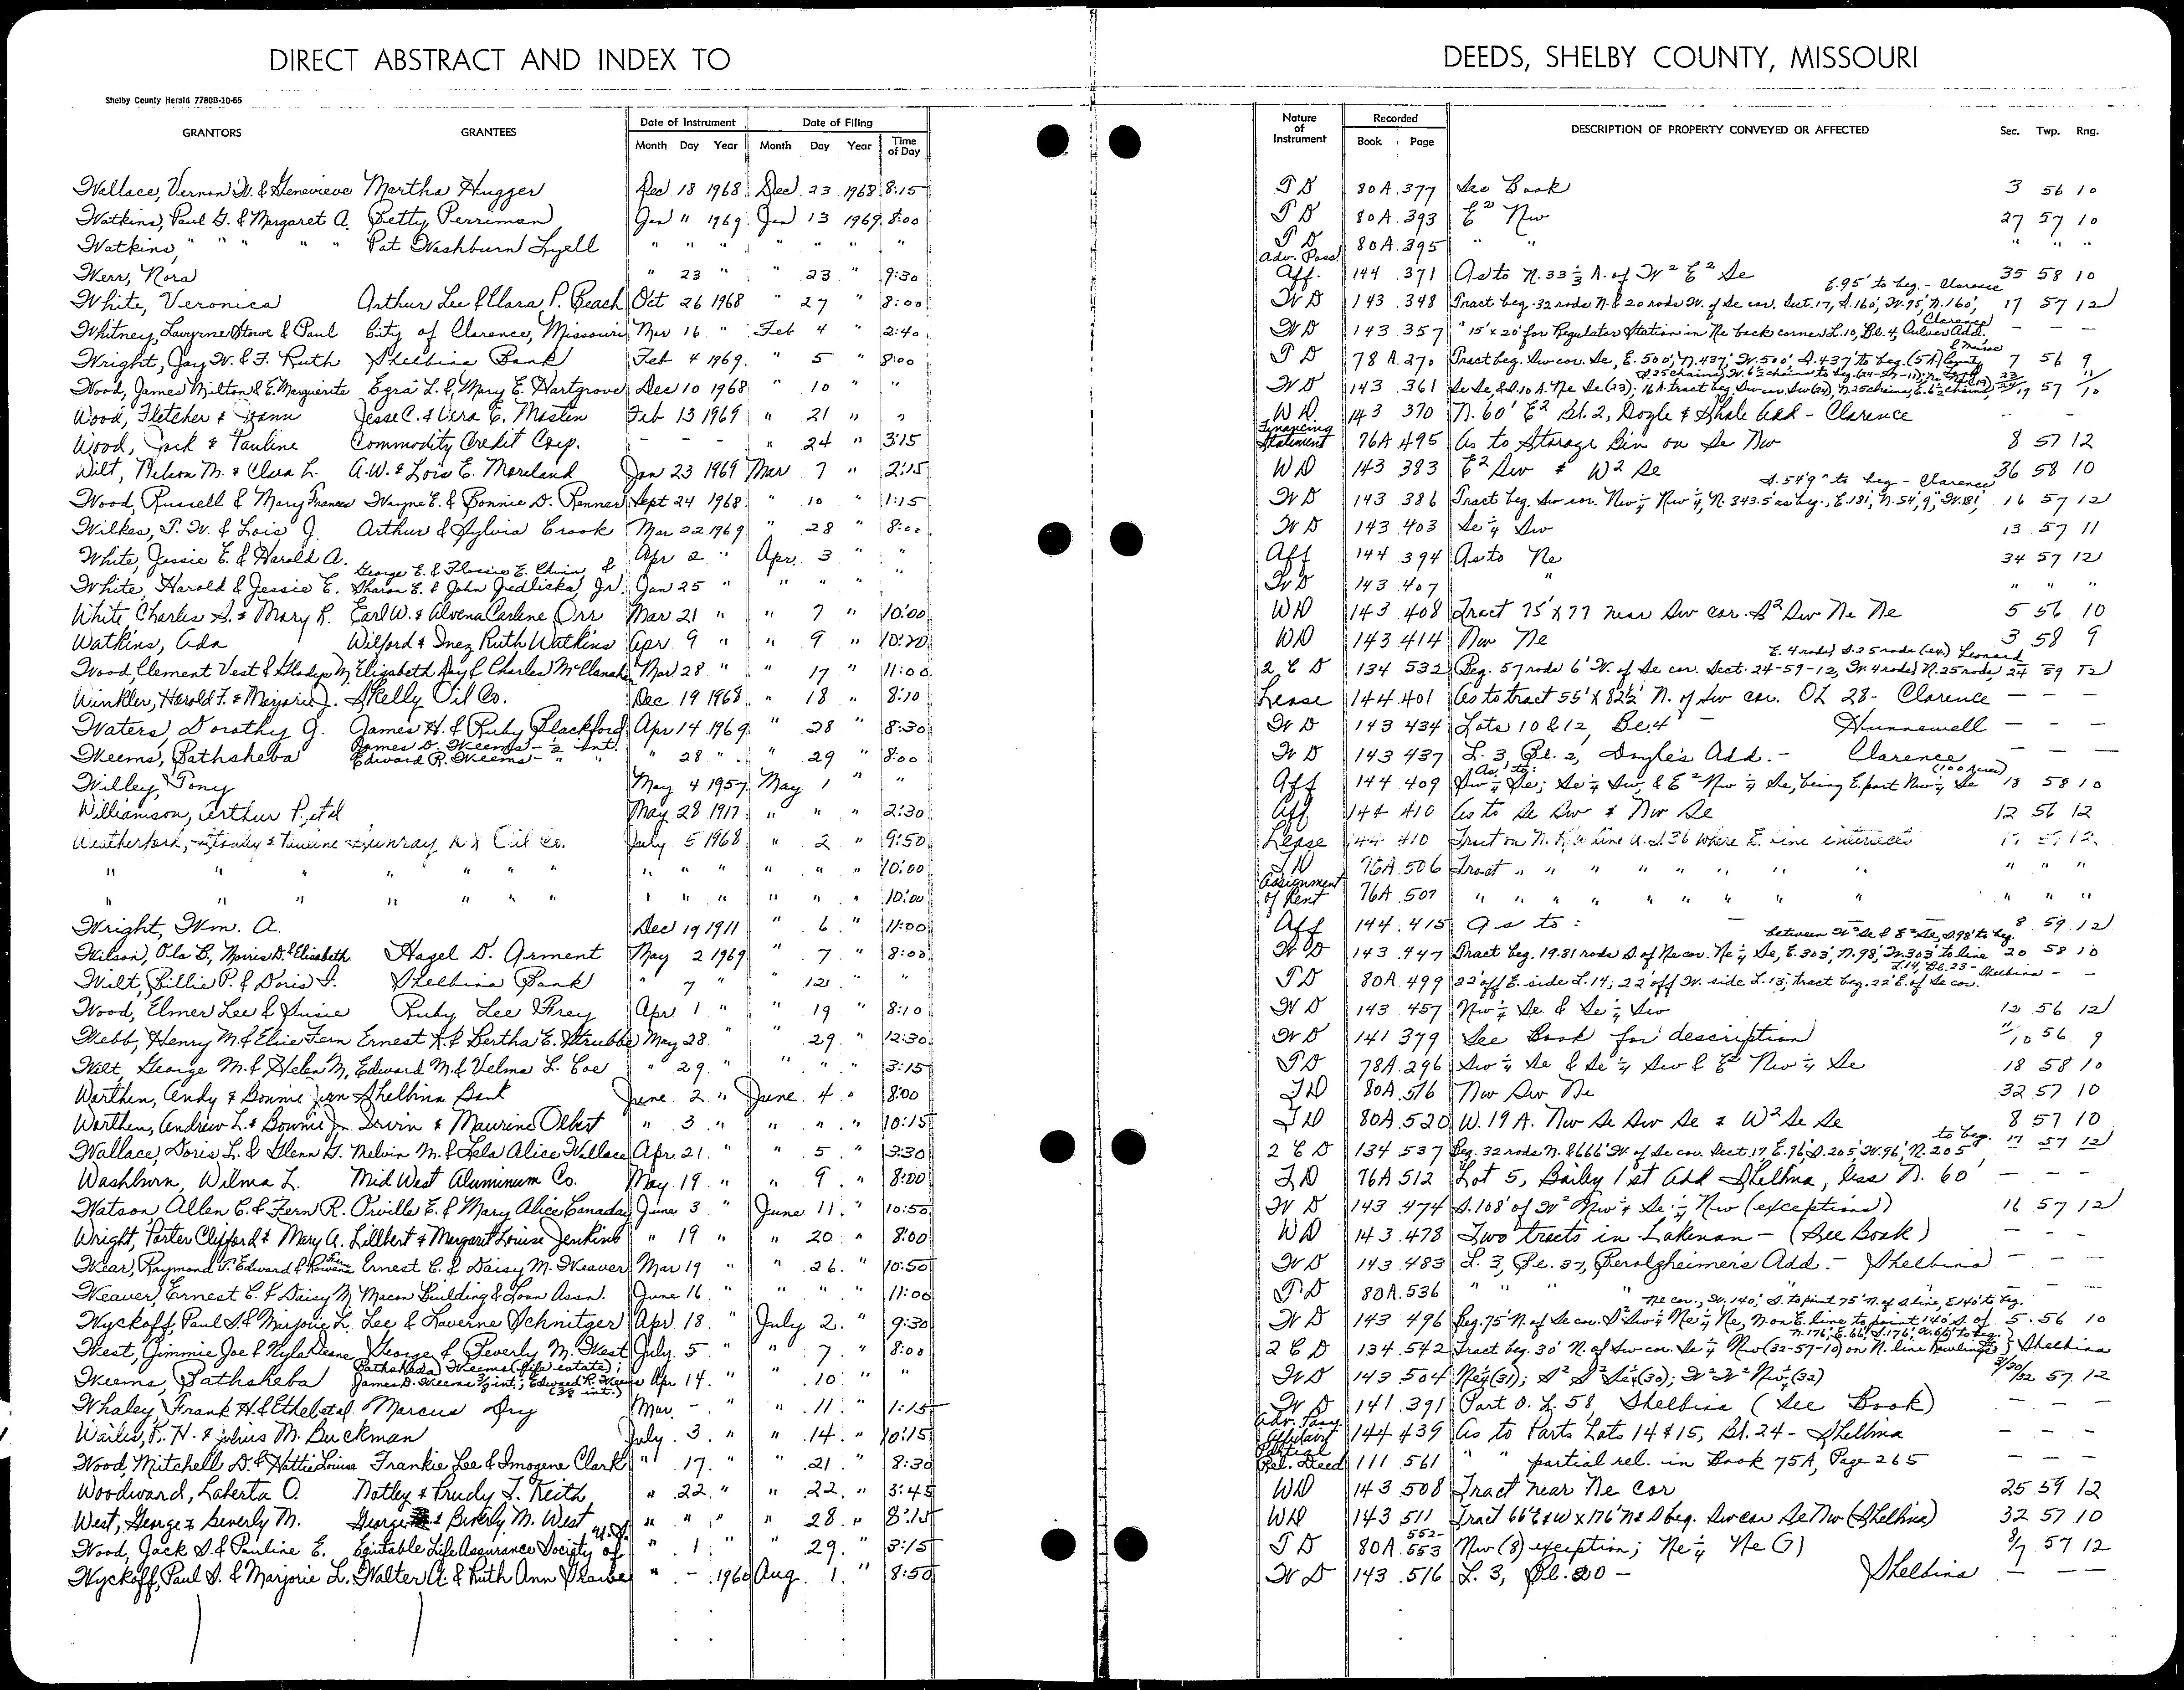 DIRECT ABSTRACT AND INDEX TO DEEDS, SHELBY COUNTY, MISSOURI
Shelby County Herald 7780B-10-65
GRANTORS GRANTEES Date of Instrument Date of Filing Nature of Instrument Recorded DESCRIPTION OF PROPERTY CONVEYED OR AFFECTED Sec. Twp. Rng.
Month Day Year Month Day Year Time of Day Book Page
Wallace, Vernon W. & Genevieve Martha Hugger Dec 18 1968 Dec 23 1968 8:15 T D 80A 377 See Book 3 56 10
Watkins, Paul G. & Margaret A. Betty Perriman Jan " 1969 Jan 13 1969 8:00 T D 80A 393 E² Nw 27 57 10
Watkins, " " " " " Pat Washburn Lyell " " " " " " " T D 80A 395 " " " " "
Werr, Nora " 23 " " 23 " 9:30 Adv. Poss. Aff. 144 371 As to N. 33 1/3 A. of W² E² Se 35 58 10
White, Veronica Arthur Lee & Clara P. Beach Oct 26 1968 " 27 " 8:00 W D 143 348 Tract beg. 32 rods N. & 20 rods W. of Se cor. Sect. 17, S. 160', W. 95', N. 160', E. 95' to beg. - Clarence 17 57 12
Whitney, Lavyrne Stowe & Paul City of Clarence, Missouri Mar 16 " Feb 4 " 2:40 W D 143 357 " 15' x 20' for Regulator Station in Ne back corner L. 10, Bl. 4, Culver Add. Clarence — — —
Wright, Jay W. & F. Ruth Shelbina Bank Feb 4 1969 " 5 " 8:00 T D 78A 270 Tract beg. Sw cor. Se, E. 500', N. 437', W. 500', S. 437' to beg. (5A) 7 56 9
Wood, James Milton & E. Marguerite Ezra L. & Mary E. Hartgrove Dec 10 1968 " 10 " " W D 143 361 Se Se, & S. 10 A. Ne Se (23); 16A. tract beg. Sw cor Sw (24), N. 25 chains, E. 6½ chains, S. 25 chains, W. 6½ chains to beg. 57
Wood, Fletcher & Joann Jesse C. & Vera E. Mastin Feb 13 1969 " 21 " " WD 143 370 N. 60' E² Bl. 2, Doyle & Shale Add - Clarence — —
Wood, Jack & Pauline Commodity Credit Corp. — — — " 24 " 3:15 Financing Statement 76A 495 As to Storage Bin on Se Nw 8 57 12
Wilt, Nelson M. & Clara L. A.W. & Lois E. Moreland Jan 23 1969 Mar 7 " 2:15 WD 143 383 E² Sw & W² Se 36 58 10
Wood, Russell & Mary Frances Wayne E. & Bonnie D. Renner Sept 24 1968 " 10 " 1:15 W D 143 386 Tract beg. Sw cor. Nw¼ Nw¼, N. 343.5' as beg., E. 181', N. 54', 9", W. 181', S. 54'9" to beg - Clarence 16 57 12
Wilkes, T. W. & Lois J. Arthur & Sylvia Crook Mar 22 1969 " 28 " 8:00 W D 143 403 Se¼ Sw 13 57 11
White, Jessie E. & Harold A. Apr 2 " Apr. 3 " " Aff 144 394 As to Ne 34 57 12
White, Harold & Jessie E. George E. & Flossie E. Chinn & Sharon E. & John Jedlicka, Jr. Jan 25 " " " " " W D 143 407 " " " "
White Charles S. & Mary R. Earl W. & Alvena Carlene Orr Mar 21 " " 7 " 10:00 WD 143 408 Tract 75' X 77 near Sw cor. S² Sw Ne Ne 5 56 10
Watkins, Ada Wilford & Inez Ruth Watkins Apr 9 " " 9 " 10:20 WD 143 414 Nw Ne 3 58 9
Wood, Clement Vest & Gladys M. Elizabeth Ray & Charles McClanahan Mar 28 " " 17 " 11:00 2 E D 134 532 Beg. 57 rods 6' W. of Se cor. Sect. 24-59-12, W. 4 rods, N. 25 rods, E. 4 rods, S. 25 rods (ex.) Leonard 24 59 12
Winkler, Harold F. & Marjorie J. Skelly Oil Co. Dec 19 1968 " 18 " 8:10 Lease 144 401 As to tract 55' X 82½' N. of Sw cor. OL 28 - Clarence — — —
Waters, Dorothy G. James H. & Ruby Blackford Apr 14 1969 " 28 " 8:30 W D 143 434 Lots 10 & 12, Bl. 4 - Hunnewell — — —
Weems, Bathsheba James D. Weems - ½ Int. Edward R. Weems - " " " 28 " " 29 " 8:00 W D 143 437 L. 3, Bl. 2, Doyle's Add. - Clarence — — —
Willey, Tony May 4 1957 May 1 " " Aff 144 409 As to: Sw¼ Se; Se¼ Sw, & E² Nw¼ Se, being E. part Nw¼ Se (100 Acres) 18 58 10
Williamson, Arthur P., et al May 28 1917 " " " 2:30 Aff. 144 410 As to Se Sw & Nw Se 12 56 12
Weatherford, Stanley & Pauline Sunray DX Oil Co. July 5 1968 " 2 " 9:50 Lease 144 410 Tract on N. R/W line U.S. 36 where E. line intersects 17 57 12
" " " " " " " " " " " " " 10:00 T D 76A 506 Tract " " " " " " " " " "
" " " " " " " " " " " " " 10:00 Assignment of Rent 76A 507 " " " " " " " " " "
Wright, Wm. A. Dec 19 1911 " 6 " 11:00 Aff 144 415 As to: — — 8 59 12
Wilson, Ola B., Morris D. & Elizabeth Hazel D. Arment May 2 1969 " 7 " 8:00 W D 143 447 Tract beg. 19.81 rods S. of Ne cor. Ne¼ Se, E. 303', N. 98', W. 303' to line between W² Se & E² Se, S. 98' to beg. 20 58 10
Wilt, Billie P. & Doris I. Shelbina Bank " 7 " " 12 " " T D 80A 499 22' off E. side L. 14; 22' off W. side L. 13; tract beg. 22' E. of Se cor. L. 14, Bl. 23 - Shelbina — —
Wood, Elmer Lee & Susie Ruby Lee Frey Apr 1 " " 19 " 8:10 W D 143 457 Nw¼ Se & Se¼ Sw 12 56 12
Webb, Henry M. & Elsie Fern Ernest K. & Bertha E. Strubbe May 28 " " 29 " 12:30 W D 141 379 See Book for description 11/10 56 9
Wilt, George M. & Helen M. Edward M. & Velma L. Coe " 29 " " " " 3:15 T D 78A 296 Sw¼ Se & Se¼ Sw & E² Nw¼ Se 18 58 10
Worthen, Andy & Bonnie Jean Shelbina Bank June 2 " June 4 " 8:00 T D 80A 516 Nw Sw Ne 32 57 10
Worthen, Andrew L. & Bonnie Jn. Irvin & Maurine Olbert " 3 " " " " 10:15 T D 80A 520 W. 19 A. Nw Se Sw Se & W² Se Se 8 57 10
Wallace, Doris L. & Glenn G. Melvin M. & Lela Alice Wallace Apr 21 " " 5 " 3:30 2 E D 134 537 Beg. 32 rods N. & 666' W of Se cor. Sect. 17, E. 96', S. 205', W. 96', N. 205' to beg. 17 57 12
Washburn, Wilma L. Mid West Aluminum Co. May 19 " " 9 " 8:00 T D 76A 512 Lot 5, Bailey 1st Add Shelbina, less N. 60' — — —
Watson Allen C. & Fern R. Orville E. & Mary Alice Canaday June 3 " June 11 " 10:50 W D 143 474 S. 108' of W² Nw¼ Se¼ Nw (exceptions) 16 57 12
Wright, Porter Clifford & Mary A. Lillbert & Margaret Louise Jenkins " 19 " " 20 " 8:00 WD 143 478 Two tracts in Lakenan - (See Book) — — —
Wear, Raymond T. Edward & Rowena Fern Ernest C. & Daisy M. Weaver Mar 19 " " 26 " 10:50 W D 143 483 L. 3, Bl. 37, Perolzheimer's Add. - Shelbina — — —
Weaver, Ernest C. & Daisy M. Macon Building & Loan Assn. June 16 " " " " 11:00 T D 80A 536 " " " " " — — —
Wyckoff, Paul S. & Marjorie L. Lee & Laverne Schnitzer Apr. 18 " July 2 " 9:30 W D 143 496 Beg. 75' N. of Se cor. S² Sw¼ Ne¼ Ne, N. on E. line to point 140' S. of Ne cor., W. 140', S. to point 75' N. of S line, E 140' to beg. 5 56 10
West, Jimmie Joe & Nyla Deane George & Beverly M. West July 5 " " 7 " 8:00 2 E D 134 542 Tract beg. 30' N. of Sw cor. Se¼ Nw (32-57-10) on N. line N. 176', E. 66', S. 176', W. 66' to beg. } Shelbina
Weems, Bathsheba Bathsheba Weems (life estate); James D. Weems ⅜ int.; Edward R. Weems (⅜ int.) Apr 14 " " 10 " " W D 143 504 Ne¼ (31); S² S² Se¼ (30); W² W² Nw¼ (32) 31/30/32 57 12
Whaley, Frank H. & Ethel et al. Marcus Dry Mar. — " " 11 " 1:15 W D 141 391 Part O. L. 58, Shelbina (See Book) — — —
Wailes, R. H. & Julius M. Buckman July 3 " " 14 " 10:15 Adv. Poss. Affidavit 144 439 As to Parts Lots 14 & 15, Bl. 24 - Shelbina — — —
Wood, Mitchell D. & Hattie Louise Frankie Lee & Imogene Clark " 17 " " 21 " 8:30 Partial Rel. Deed 111 561 " " partial rel. in Book 75A, Page 265 — — —
Woodward, Laberta O. Notley & Trudy J. Keith " 22 " " 22 " 3:45 WD 143 508 Tract near Ne cor 25 59 12
West, George & Beverly M. George & Beverly M. West " " " " 28 " 8:15 WD 143 511 Tract 66' E & W x 176' N & S beg. Sw cor Se Nw (Shelbina) 32 57 10
Wood, Jack S. & Pauline E. Equitable Life Assurance Society of U.S. " 1 " " 29 " 3:15 T D 80A 552-553 Nw (8) exception; Ne¼ Ne (7) 8/7 57 12
Wyckoff, Paul S. & Marjorie L. Walter A. & Ruth Ann " — 1960 Aug. 1 " 8:50 W D 143 516 L. 3, Bl. 20 - Shelbina — — —